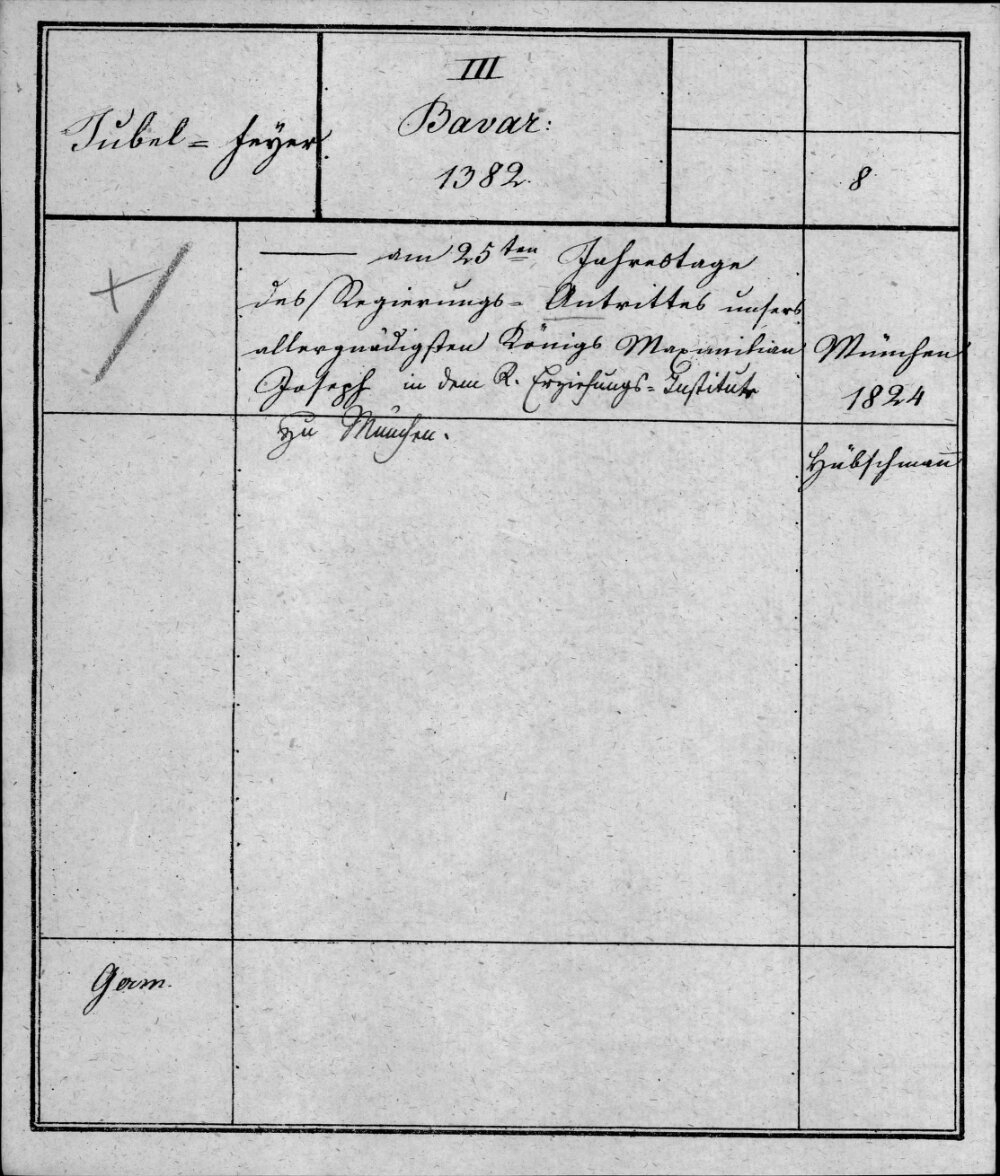 Jubel= Feyer
III
Bavar:
1382.
8
—— am 25ten Jahrestage
des Regierungs= Antrittes unsers
allergnädigsten Königs Maximilian
Joseph in dem K. Erziehungs=Institute
zu München.
München
1824
Hübschmann
Germ.